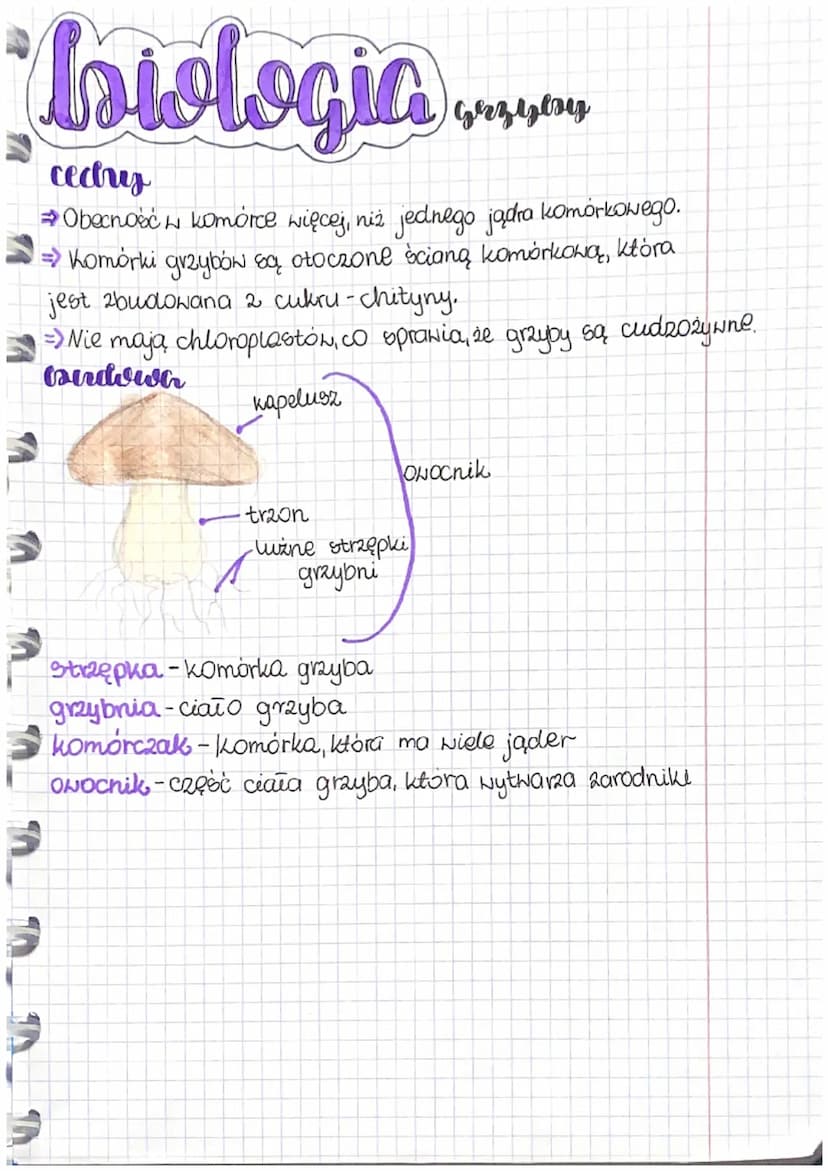 biologia grzyby
cechy
⇒ Obecność w komórce więcej, niż jednego jądra komórkowego.
⇒ Komórki grzybów są otoczone ścianą komórkową, która
jest zbudowana z cukru - chityny.
⇒ Nie mają chloroplastów, co sprawia, że grzyby są cudzożywne.
budowa
kapelusz
owocnik
trzon
luźne strzępki
grzybni
strzępka - komórka grzyba
grzybnia - ciało grzyba
komórczak - komórka, która ma wiele jąder
owocnik - część ciała grzyba, która wytwarza zarodniki